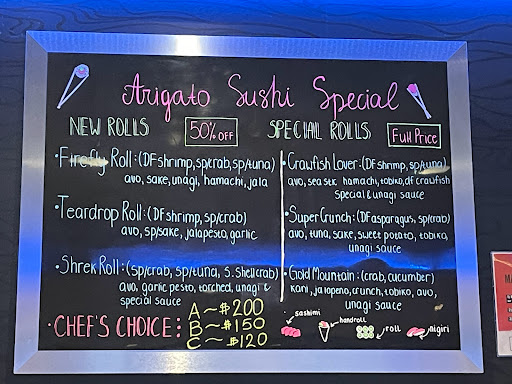 Arigato Sushi Special
NEW ROLLS 50% OFF
• Firefly Roll: (DF shrimp, sp/crab, sp/tuna)
avo, sake, unagi, hamachi, jala
• Teardrop Roll: (DF shrimp, sp/crab)
avo, sp/sake, jalapesto, garlic
• Shrek Roll: (sp/crab, sp/tuna, S. Shell crab)
avo, garlic pesto, torched, unagi &
special sauce
SPECIAL ROLLS Full Price
• Crawfish Lover: (DF shrimp, sp/tuna)
avo, sea stk hamachi, tobiko, df crawfish
special & unagi sauce
• Super Crunch: (DF asparagus, sp/crab)
avo, tuna, sake, sweet potato, tobiko,
unagi sauce
• Gold Mountain: (crab, cucumber)
kani, jalapeno, crunch, tobiko, avo,
unagi sauce
• CHEF'S CHOICE:
A ~ $200
B ~ $150
C ~ $120
sashimi
handroll
roll
nigiri